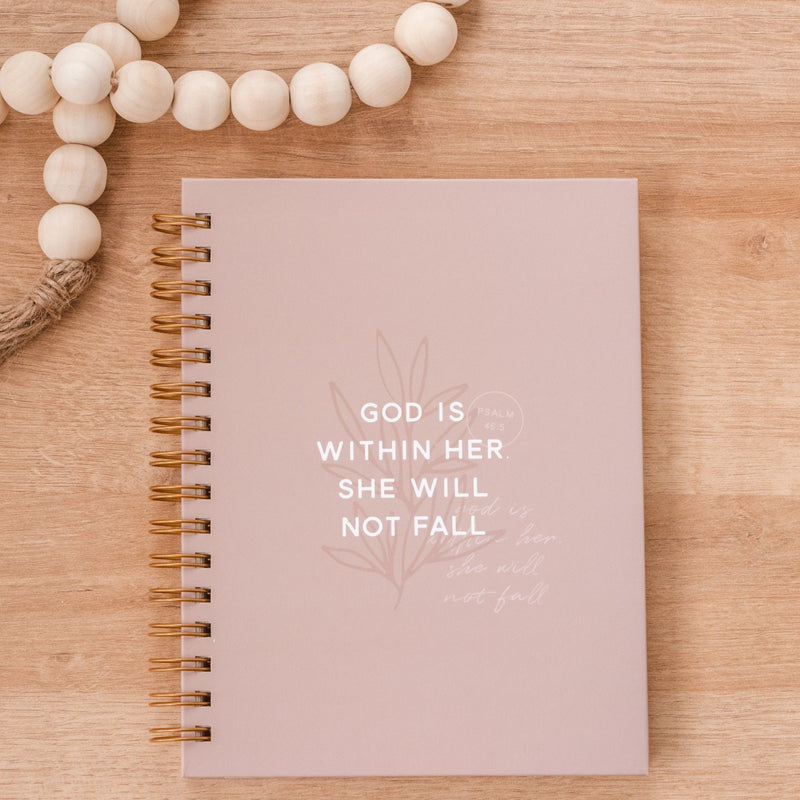 GOD IS
WITHIN HER.
SHE WILL
NOT FALL
PSALM
46:5
god is
within her.
she will
not fall